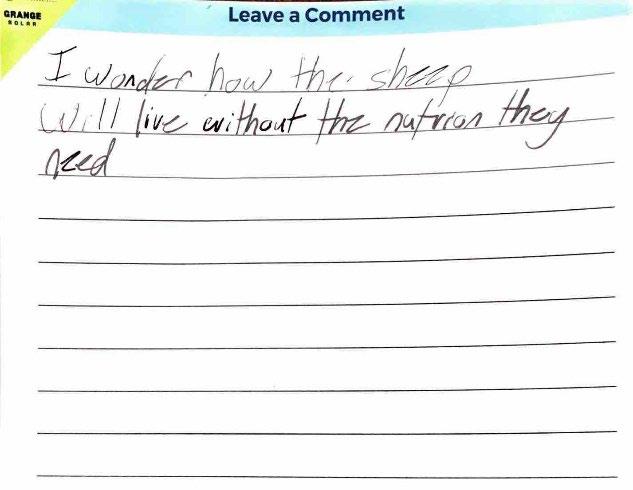 GRANGE
SOLAR
Leave a Comment
I wonder how the sheep
will live without the nutrion they
need